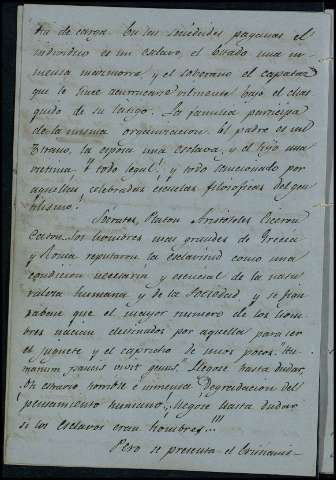 de carga. En las sociedades paganas el
individuo es un esclavo, el Estado una in-
mensa mazmorra, y el soberano el capataz
que le hace vilmente bajo el chas
quido de su látigo. La familia participa
de la misma organizacion. El padre es un
tirano, la esposa una esclava, y el hijo una
victima, ¡y todo legal! y todo sancionado por
aquellas celebradas escuelas filosoficas del gen
tilismo!
Sócrates, Platon Aristóteles Ciceron
Caton.. los hombres mas grandes de Grecia
y Roma reputaron la esclavitud como una
condicion necesaria y esencial de la natu
raleza humana y de la Sociedad y se
que el mayor numero de los hom
bres nacian destinados por aquella para ser
el juguete y el capricho de unos pocos. "Hu
manum paucis vivit genus. Llegóse hasta dudar,
Oh estravio horrible é inmensa Degradacion del
pensamiento humano! llegóse hasta dudar
si los esclavos eran hombres..!!!
Pero se presenta el Cristianis-